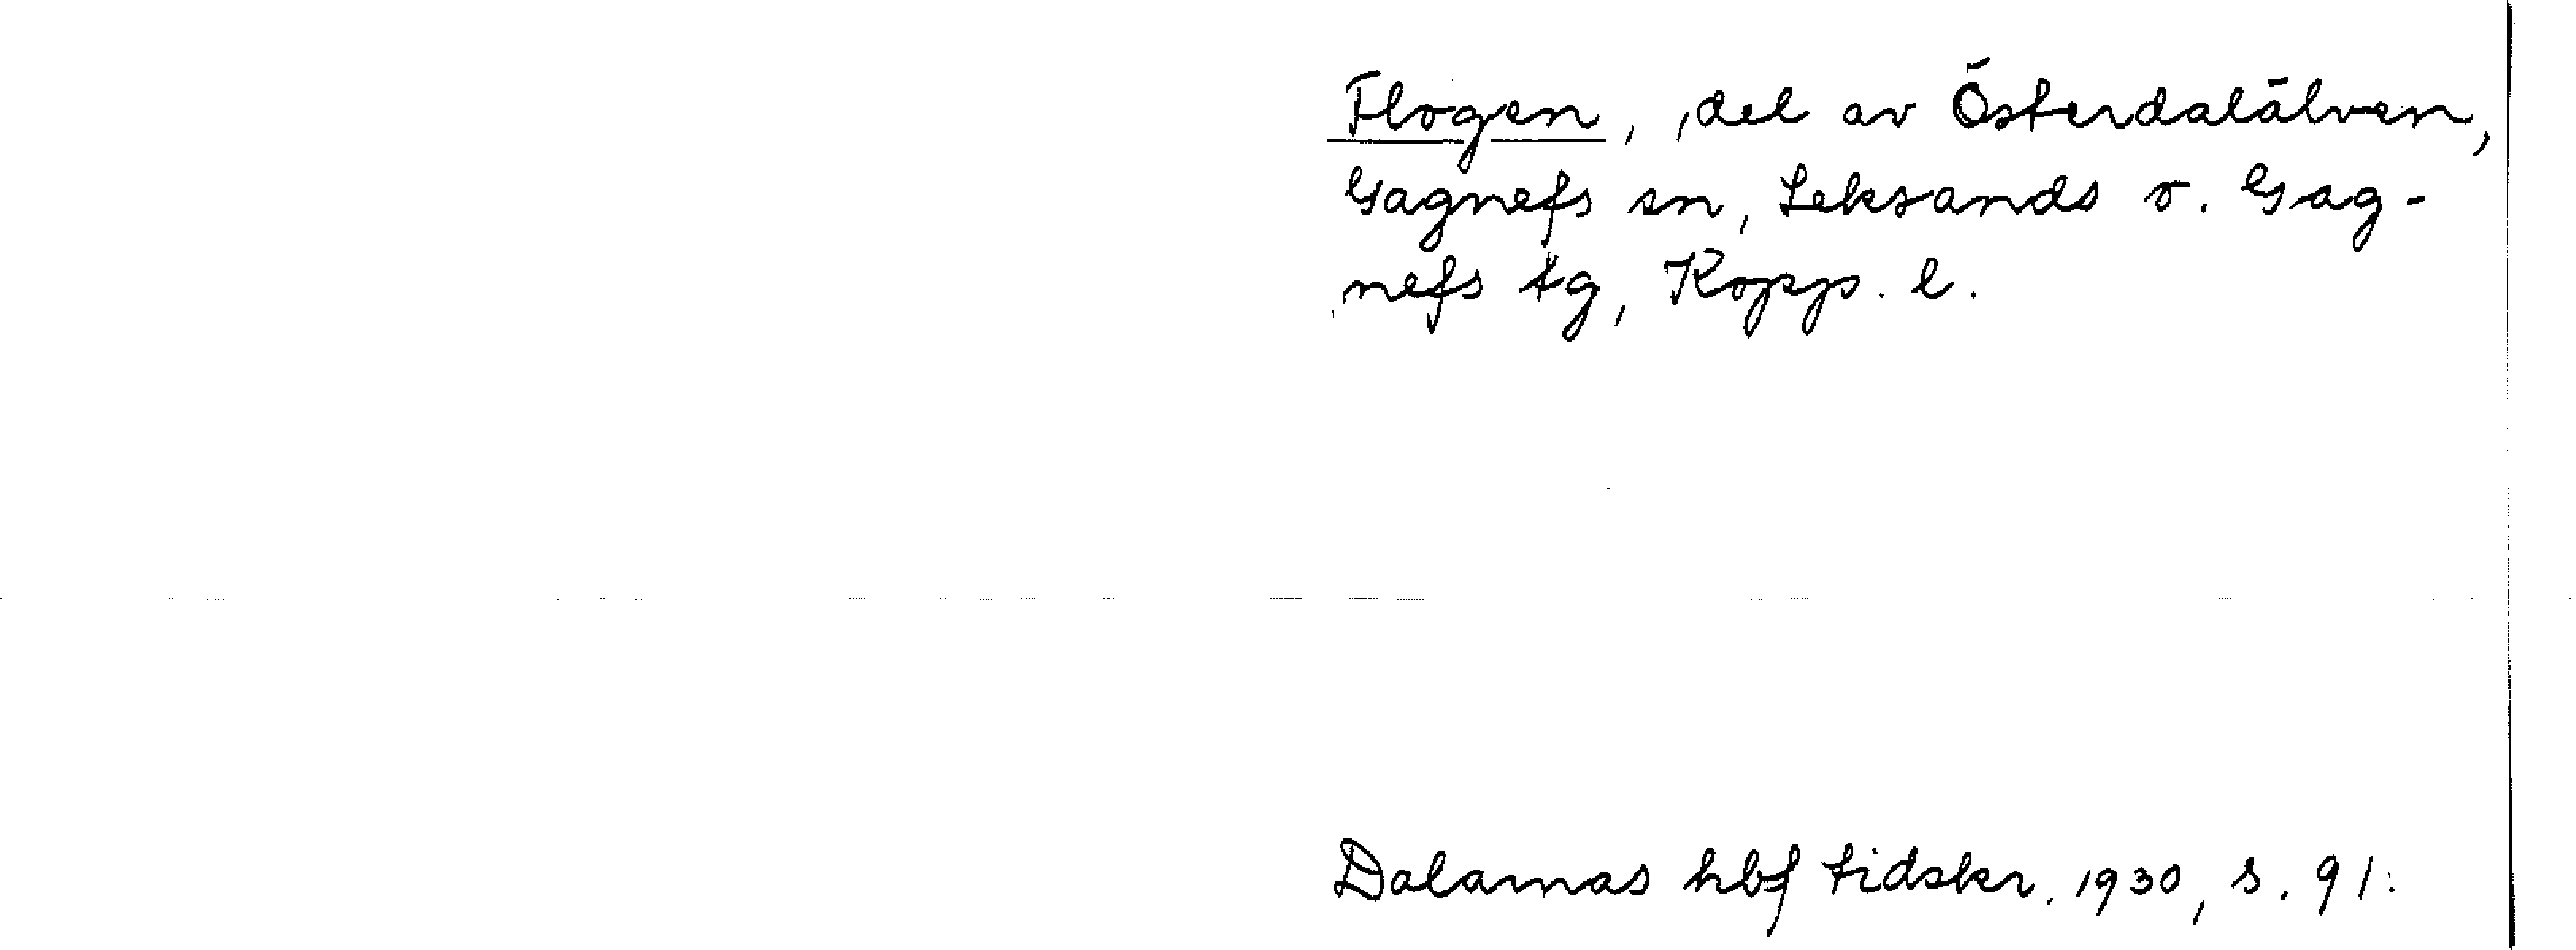 Flogen, del av Österdalälven,
Gagnefs sn, Leksands o. Gag-
nefs tg, Kopp. l.
Dalarnas hbf tidskr. 1930, s. 91.